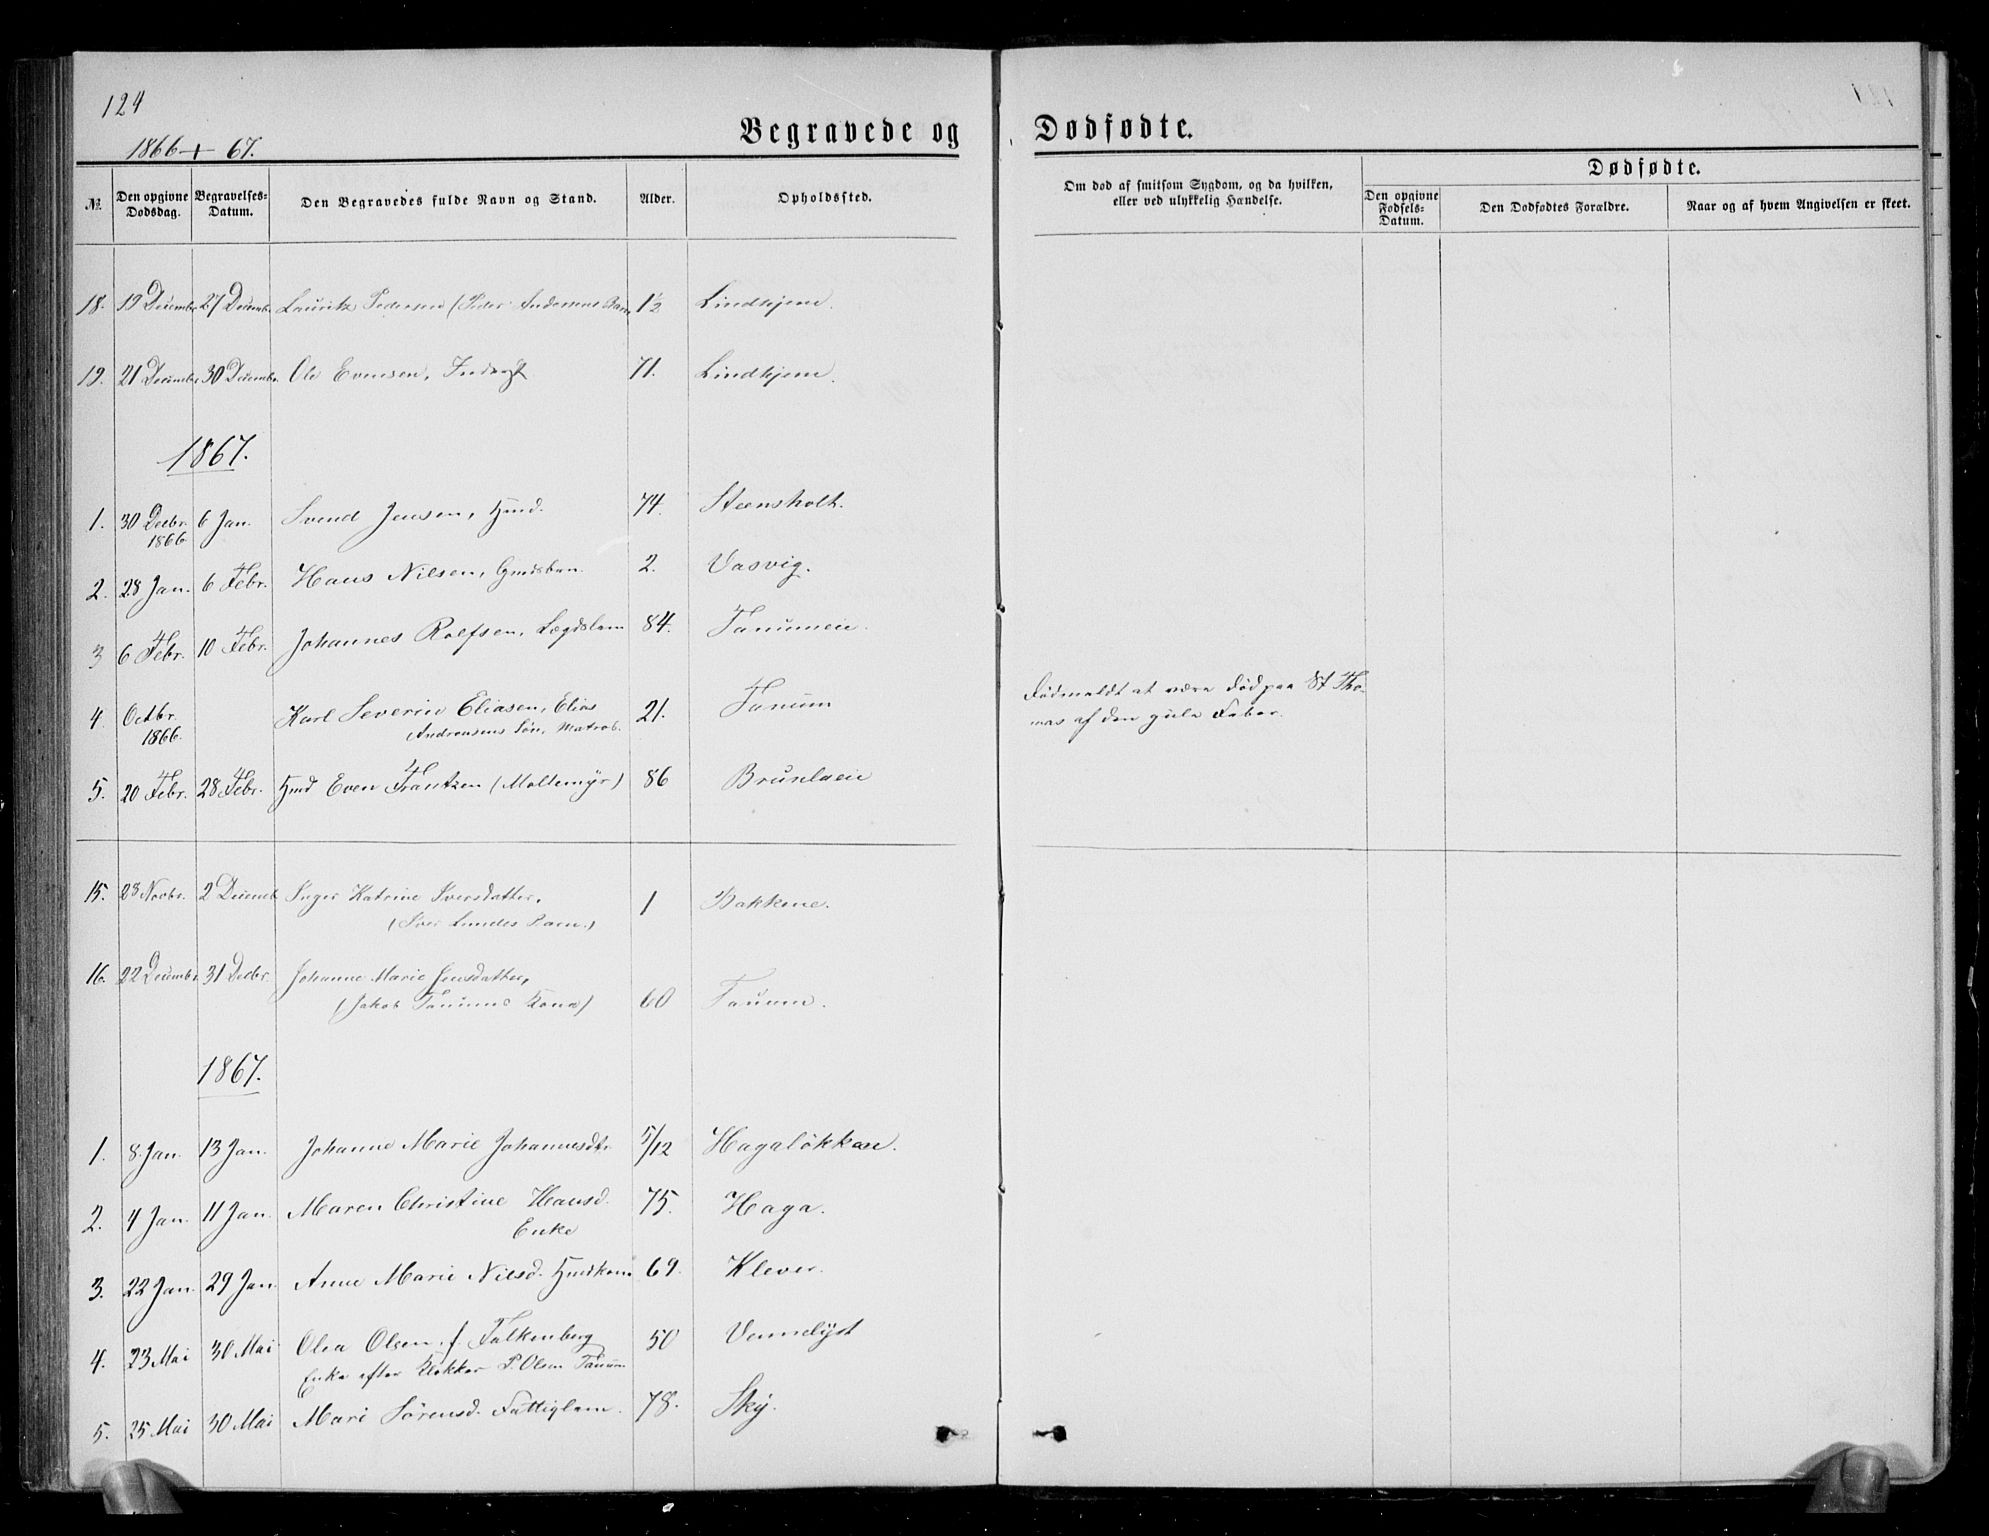 124
1866 + 67.
Begravede og Dødfødte.
№. Den opgivne Dødsdag. Begravelses-Datum. Den Begravedes fulde Navn og Stand. Alder. Opholdssted. Om død af smitsom Sygdom, og da hvilken, eller ved ulykkelig Hændelse.
Dødfødte.
Den opgivne Fødsels-Datum. Den Dødfødtes Forældre. Naar og af hvem Angivelsen er skeet.
18. 19 Decembr 27 Decembr Lauritz Pedersen (Peder Andersens Barn 1½ Lindhjem.
19. 21 Decembr 30 Decembr. Ole Evensen, 71. Lindhjem.
1867.
1. 30 Decbr. 1866 6 Jan. Svend Jensen, Hmd. 74. Steensholt.
2. 28 Jan. 6 Febr. Hans Nilsen, Gmdsbarn. 2. Vasvig.
3 6 Febr. 10 Febr. Johannes Rolfsen, Lægdslem 84. Tanumeie.
4. Octbr. 1866. Karl Severin Eliasen, Elias 21. Tanum Dødmeldt at være død paa St Tho-
Andreasens Søn, Matros. mas af den gule Feber.
5. 20 Febr. 28 Febr. Hmd Even Frantzen (Moltemyr) 86 Brunlaeie
15. 28 Novbr. 2 Decemb. Inger Katrine Iversdatter, 1 Bakkene.
(Iver Lundes Barn.)
16. 22 Decembr. 31 Decbr. Johanne Marie Jensdatter,
(Jakob Tanums Kone) 60 Tanum.
1867.
1. 8 Jan. 13 Jan. Johanne Marie Johannesdtr. 5/12 Hagaløkken.
2. 4 Jan. 11 Jan. Maren Christine Hansd. 75. Haga.
Enke
3. 22 Jan. 29 Jan. Anne Marie Nilsd. Hmdkone 69. Klever.
4. 23 Mai 30 Mai Olea Olsen f. Falkenberg 50 Vennelyst
Enke efter Klokker P. Olsen Tanum
5. 25 Mai 30 Mai Mari Sörensd. Fattiglem. 78. Sky.